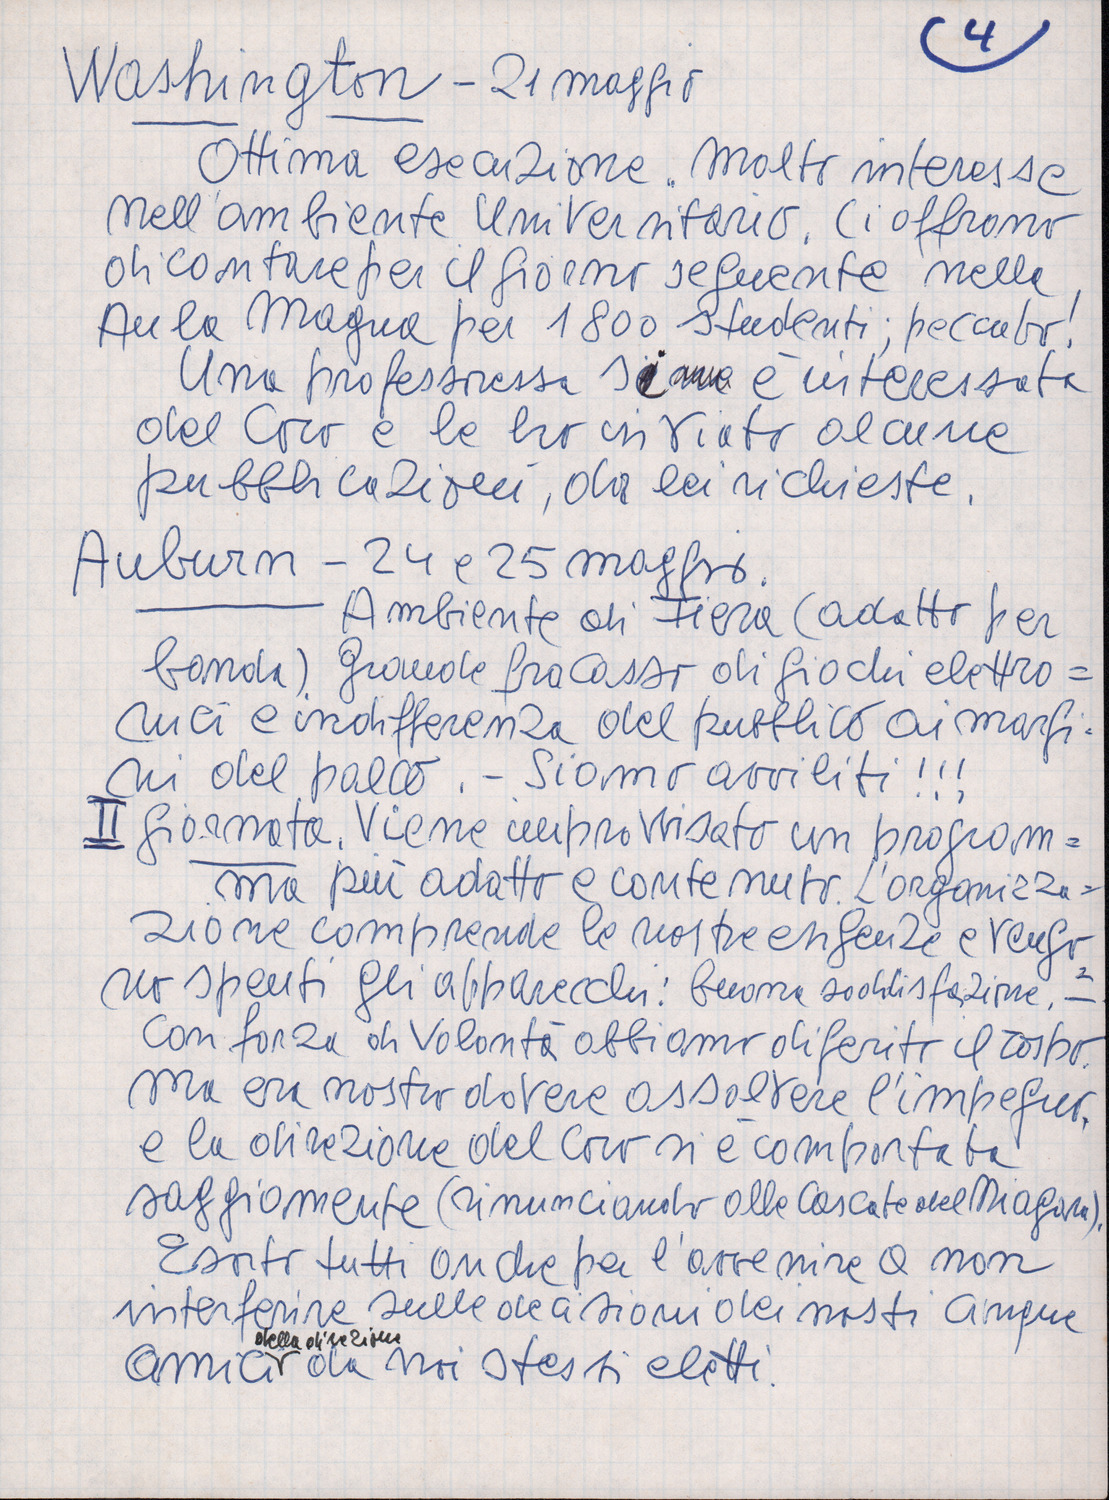 4
Washington - 21 maggio
Ottima esecuzione. Molto interesse
nell'ambiente Universitario. Ci offrono
di cantare per il giorno seguente nella
Aula Magna per 1800 studenti; peccato!
Una professoressa si è interessata
del Coro e le ho inviato alcune
pubblicazioni, da lei richieste.
Auburn - 24 e 25 maggio.
Ambiente di Fiera (adatto per
banda). Grande fracasso di giochi elettro=
nici e indifferenza del pubblico ai margi=
ni del palco. - Siamo avviliti!!!
II giornata. Viene improvvisato un program=
ma più adatto e contenuto. L'organizza=
zione comprende le nostre esigenze e vengo=
no spenti gli apparecchi: buona soddisfazione. -
Con forza di volontà abbiamo digerito il rospo.
Ma era nostro dovere assolvere l'impegno,
e la direzione del Coro si è comportata
saggiamente (rinunciando alle Cascate del Niagara).
Esorto tutti anche per l'avvenire a non
interferire sulle decisioni dei nosti cinque
della direzione
amici da noi stessi eletti.